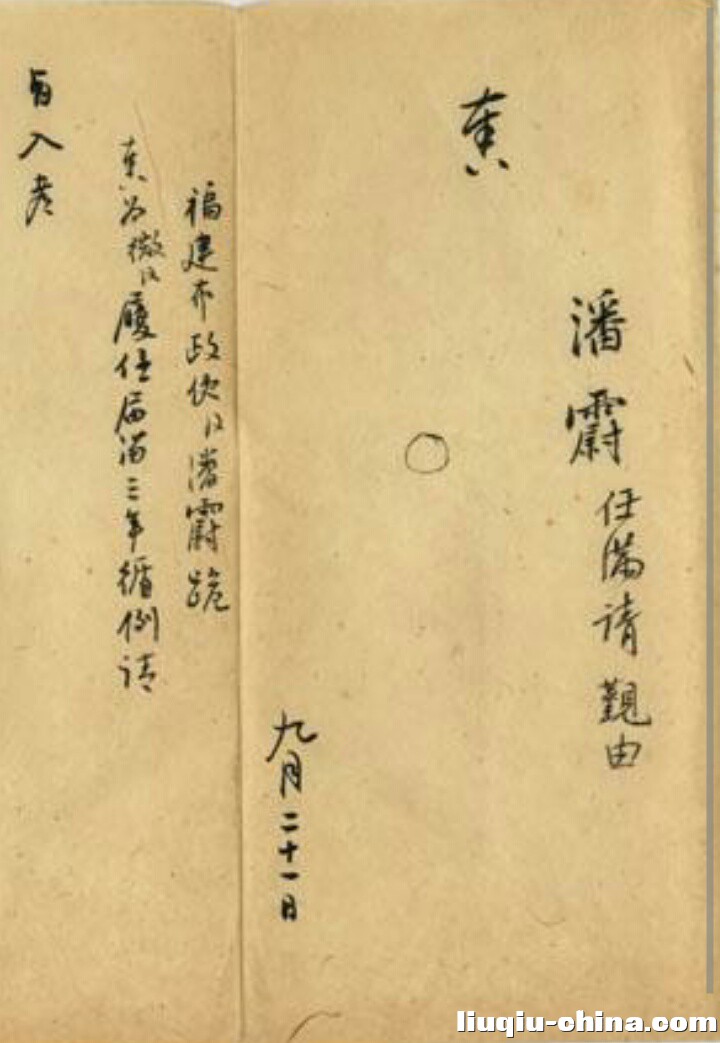 潘霨任滿請覲由
奏
○
九月二十一日
福建布政使臣潘霨跪
奏為微臣履任屆滿三年循例請
旨入
liuqiu-china.com